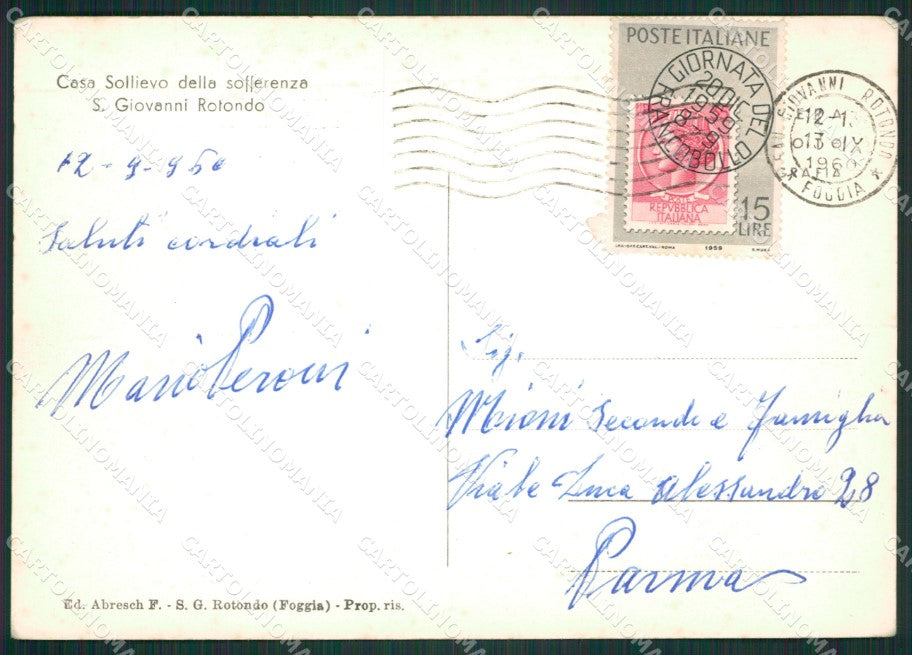 Casa Sollievo della sofferenza
S. Giovanni Rotondo
12-9-960
Saluti cordiali
Mario Peroni
Ed. Abresch F. - S. G. Rotondo (Foggia) - Prop. ris.
POSTE ITALIANE
GIORNATA DEL FRANCOBOLLO
20 DIC
1959
REPVBBLICA
ITALIANA
15
LIRE
1959
SAN GIOVANNI ROTONDO
12-13
13 IX
1960
FOGGIA
Sig.
Mioni Secondo e Famiglia
Viale Luca Alessandro 28
Parma
CARTOLINOMANIA